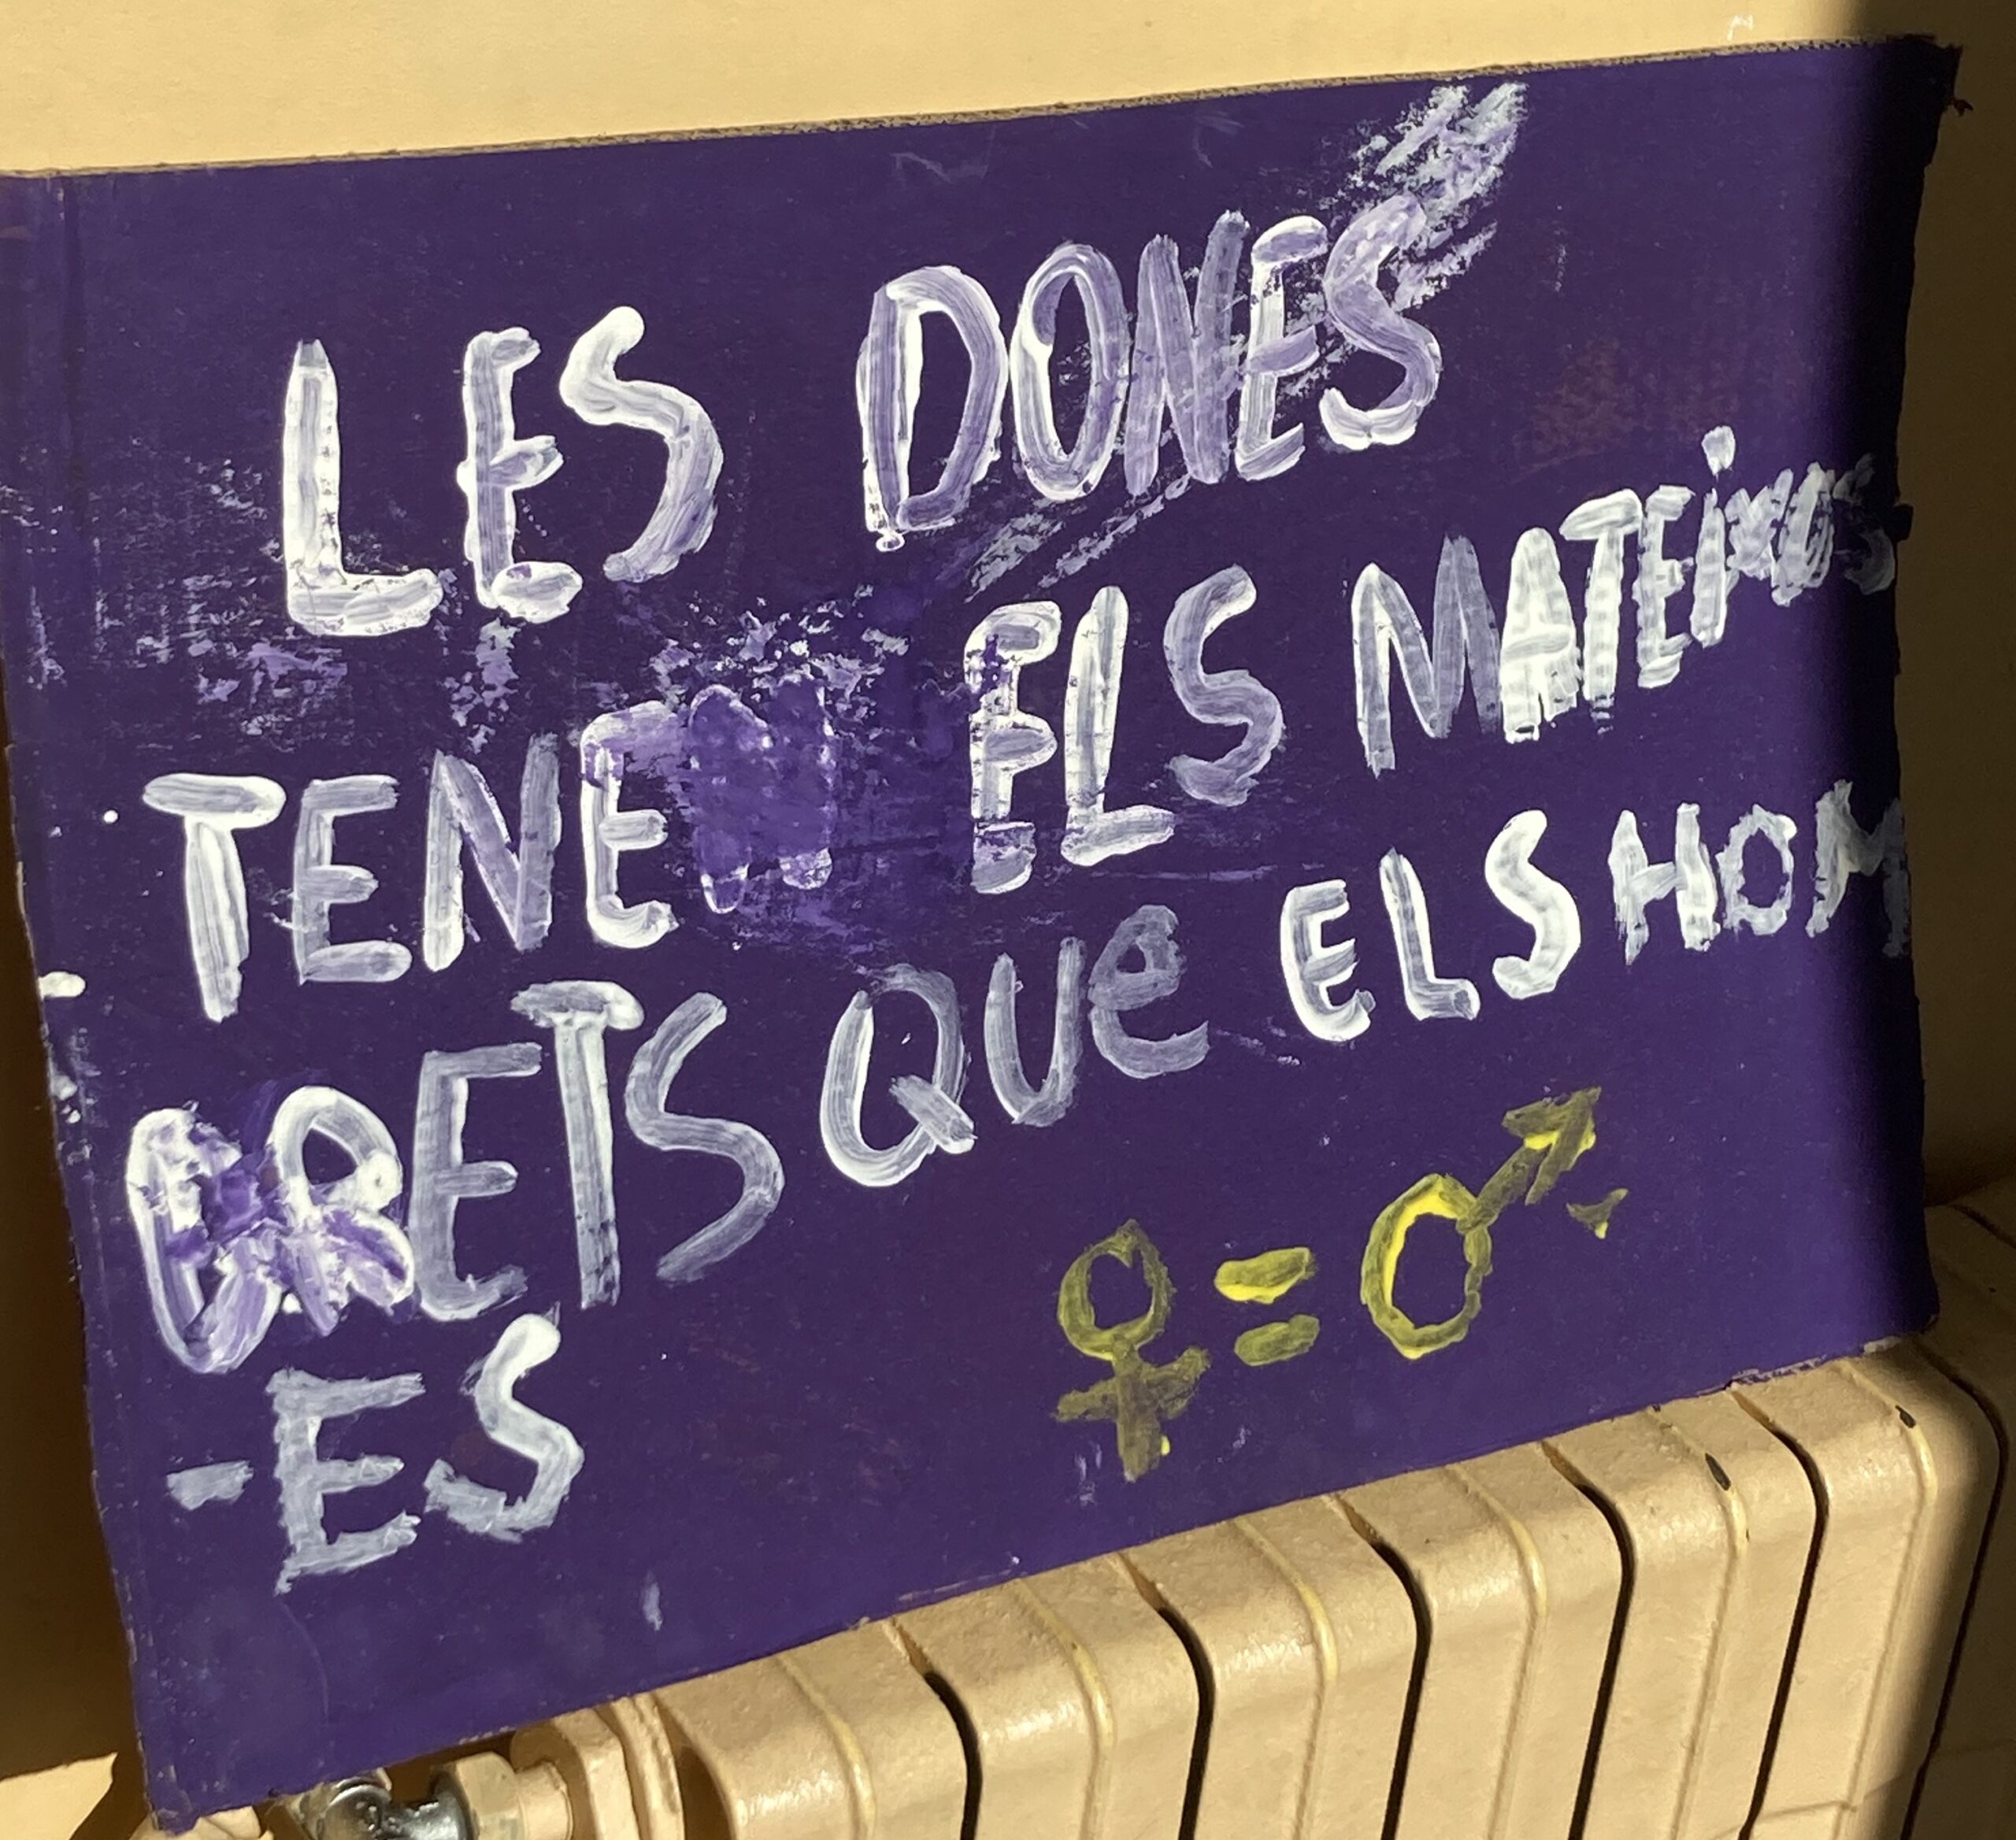 LES DONES
TENEN ELS MATEiXOS
DRETS QUe ELS HOM
-ES
♀=♂